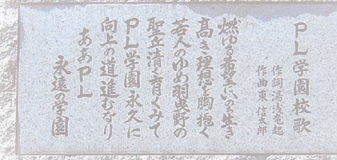 PL学園校歌
作詞 湯浅竜起
作曲 東信太郎
燃ゆる希望にいのち生き
高き理想を胸に抱く
若人のゆめ羽曳野の
聖丘清く育くみて
PL学園永久に
向上の道進むなり
ああPL
永遠の学園